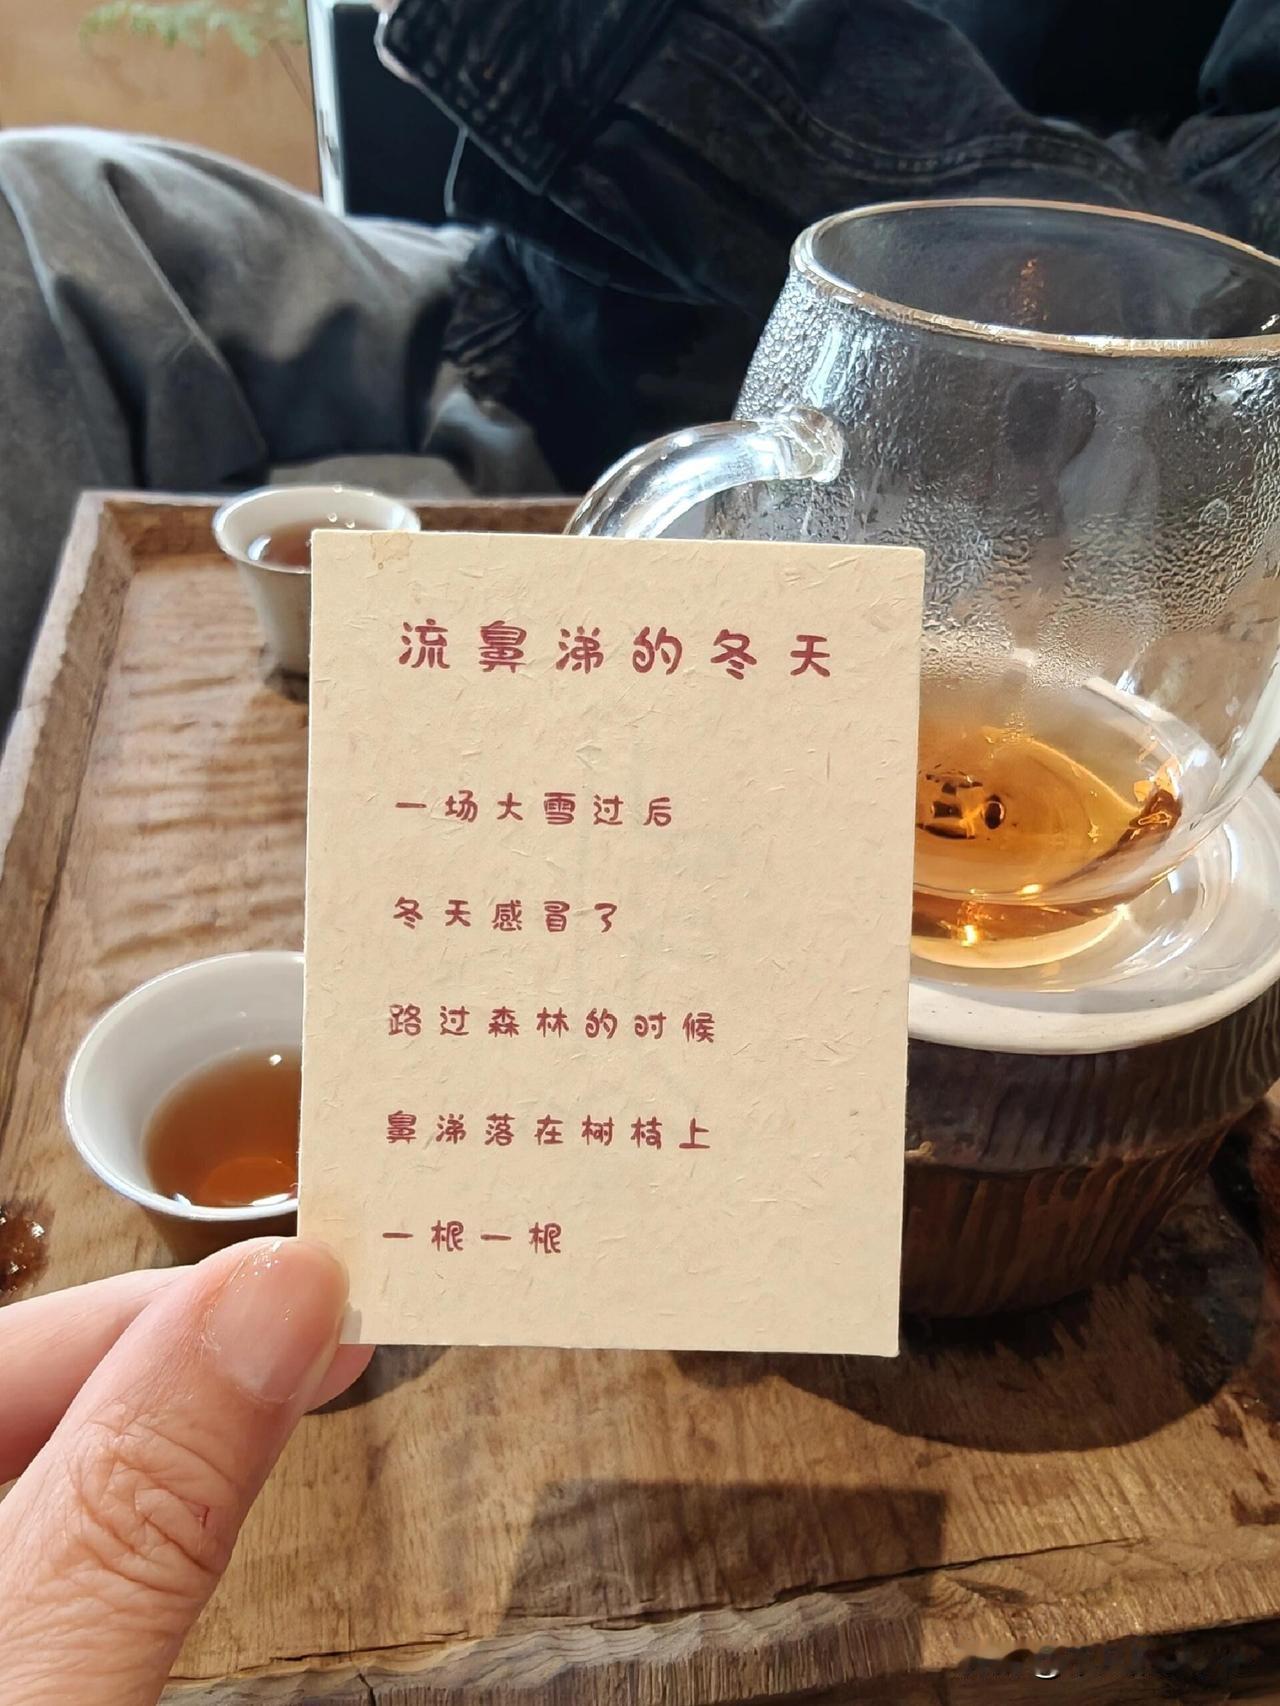 流鼻涕的冬天
一场大雪过后
冬天感冒了
路过森林的时候
鼻涕落在树枝上
一棍一棍